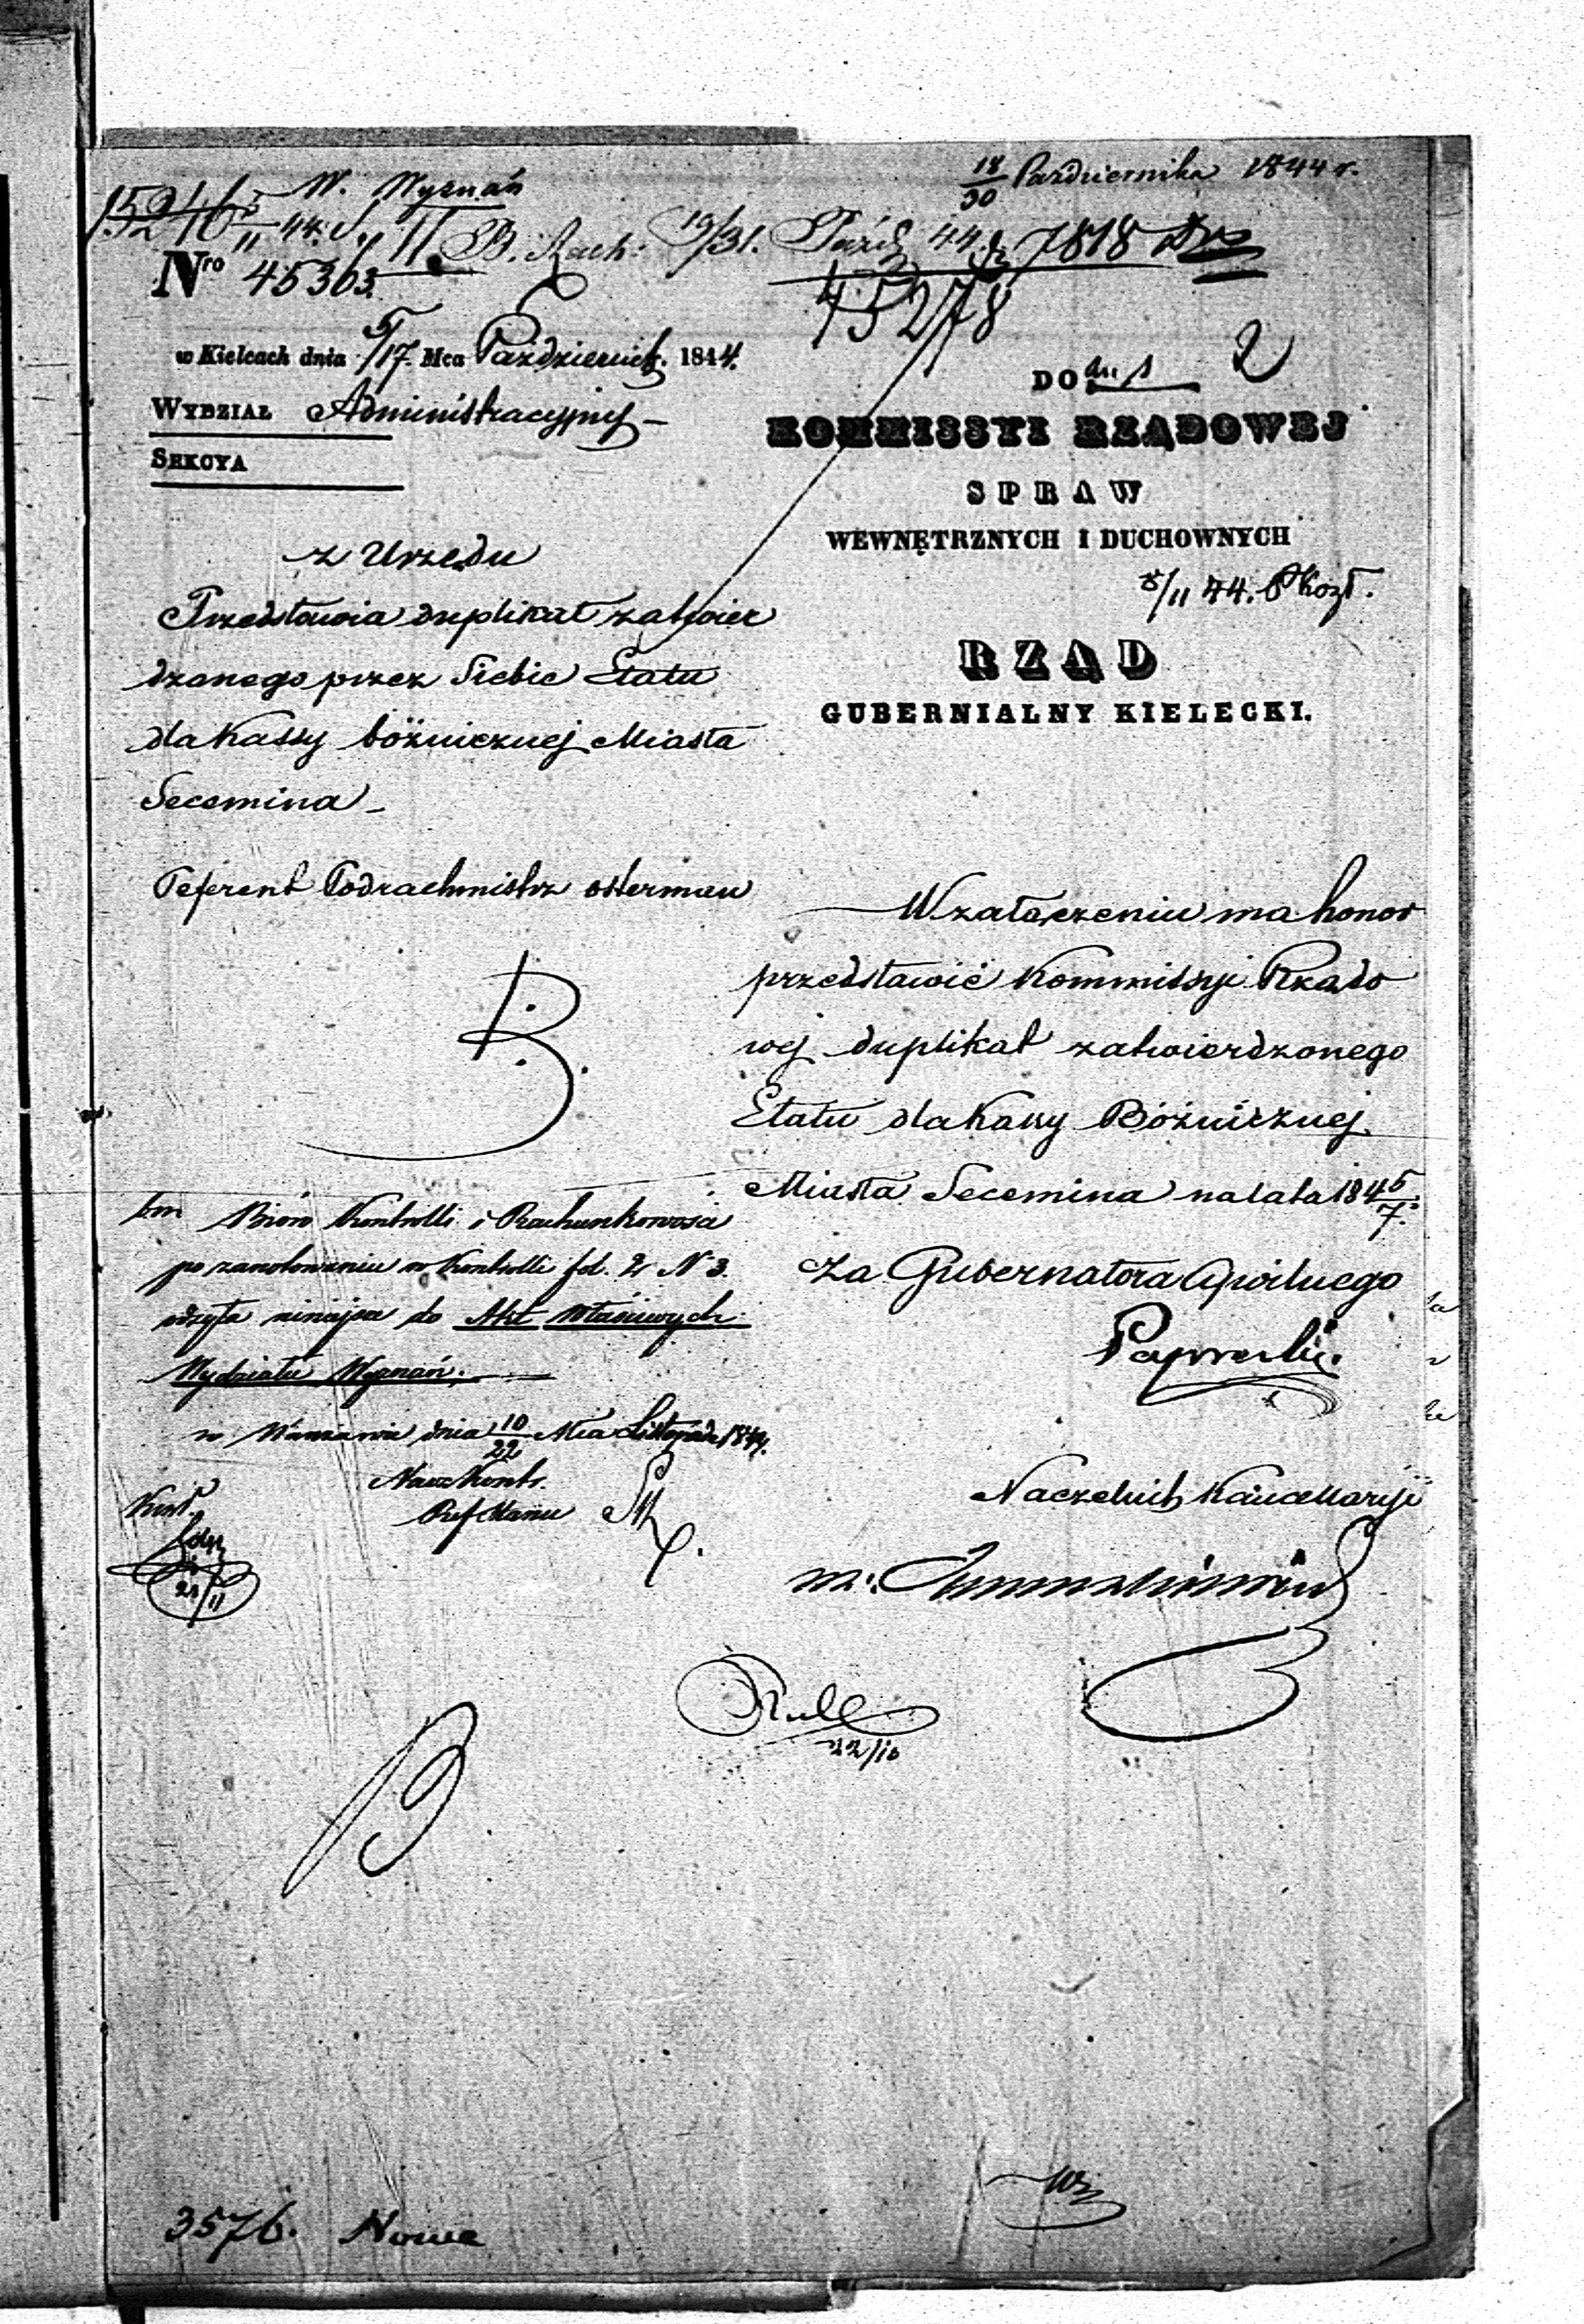 18/30 Października 1844 r.
W. Wyznań
15246 5/11 44.
II B. Rach: 19/31. Paźdz 44. 7818
Nro 45303.
45278
w Kielcach dnia 5/17. Mca Październik. 1844.
2
DO
WYDZIAŁ Administracyjny
KOMMISSYI RZĄDOWEJ
SEKCYA
SPRAW
WEWNĘTRZNYCH I DUCHOWNYCH
8/11 44.
RZĄD
GUBERNIALNY KIELECKI.
z Urzędu
Przedstawia duplikat zatwier
dzonego przez Siebie Etatu
dla Kassy bóżnicznej Miasta
Secemina
Referent Podrachmistrz Osterman
W załączeniu ma honor
przedstawić Kommissyi Rządo
wej duplikat zatwierdzonego
Etatu dla Kassy Bóżnicznej
Miasta Secemina na lata 1845/7.
Za Gubernatora Cywilnego
Naczelnik Kancellaryi
Bióro Kontrolli i Rachunkowości
po zanotowaniu w Kontrolli fol. 2 N 3.
odsyła niniejsze do Akt właściwych
Wydziału Wyznań.
w Warszawie dnia 10/22 Mca Listopada 1844.
Nacz Kontr.
21/11
22/10
3576. Nowe